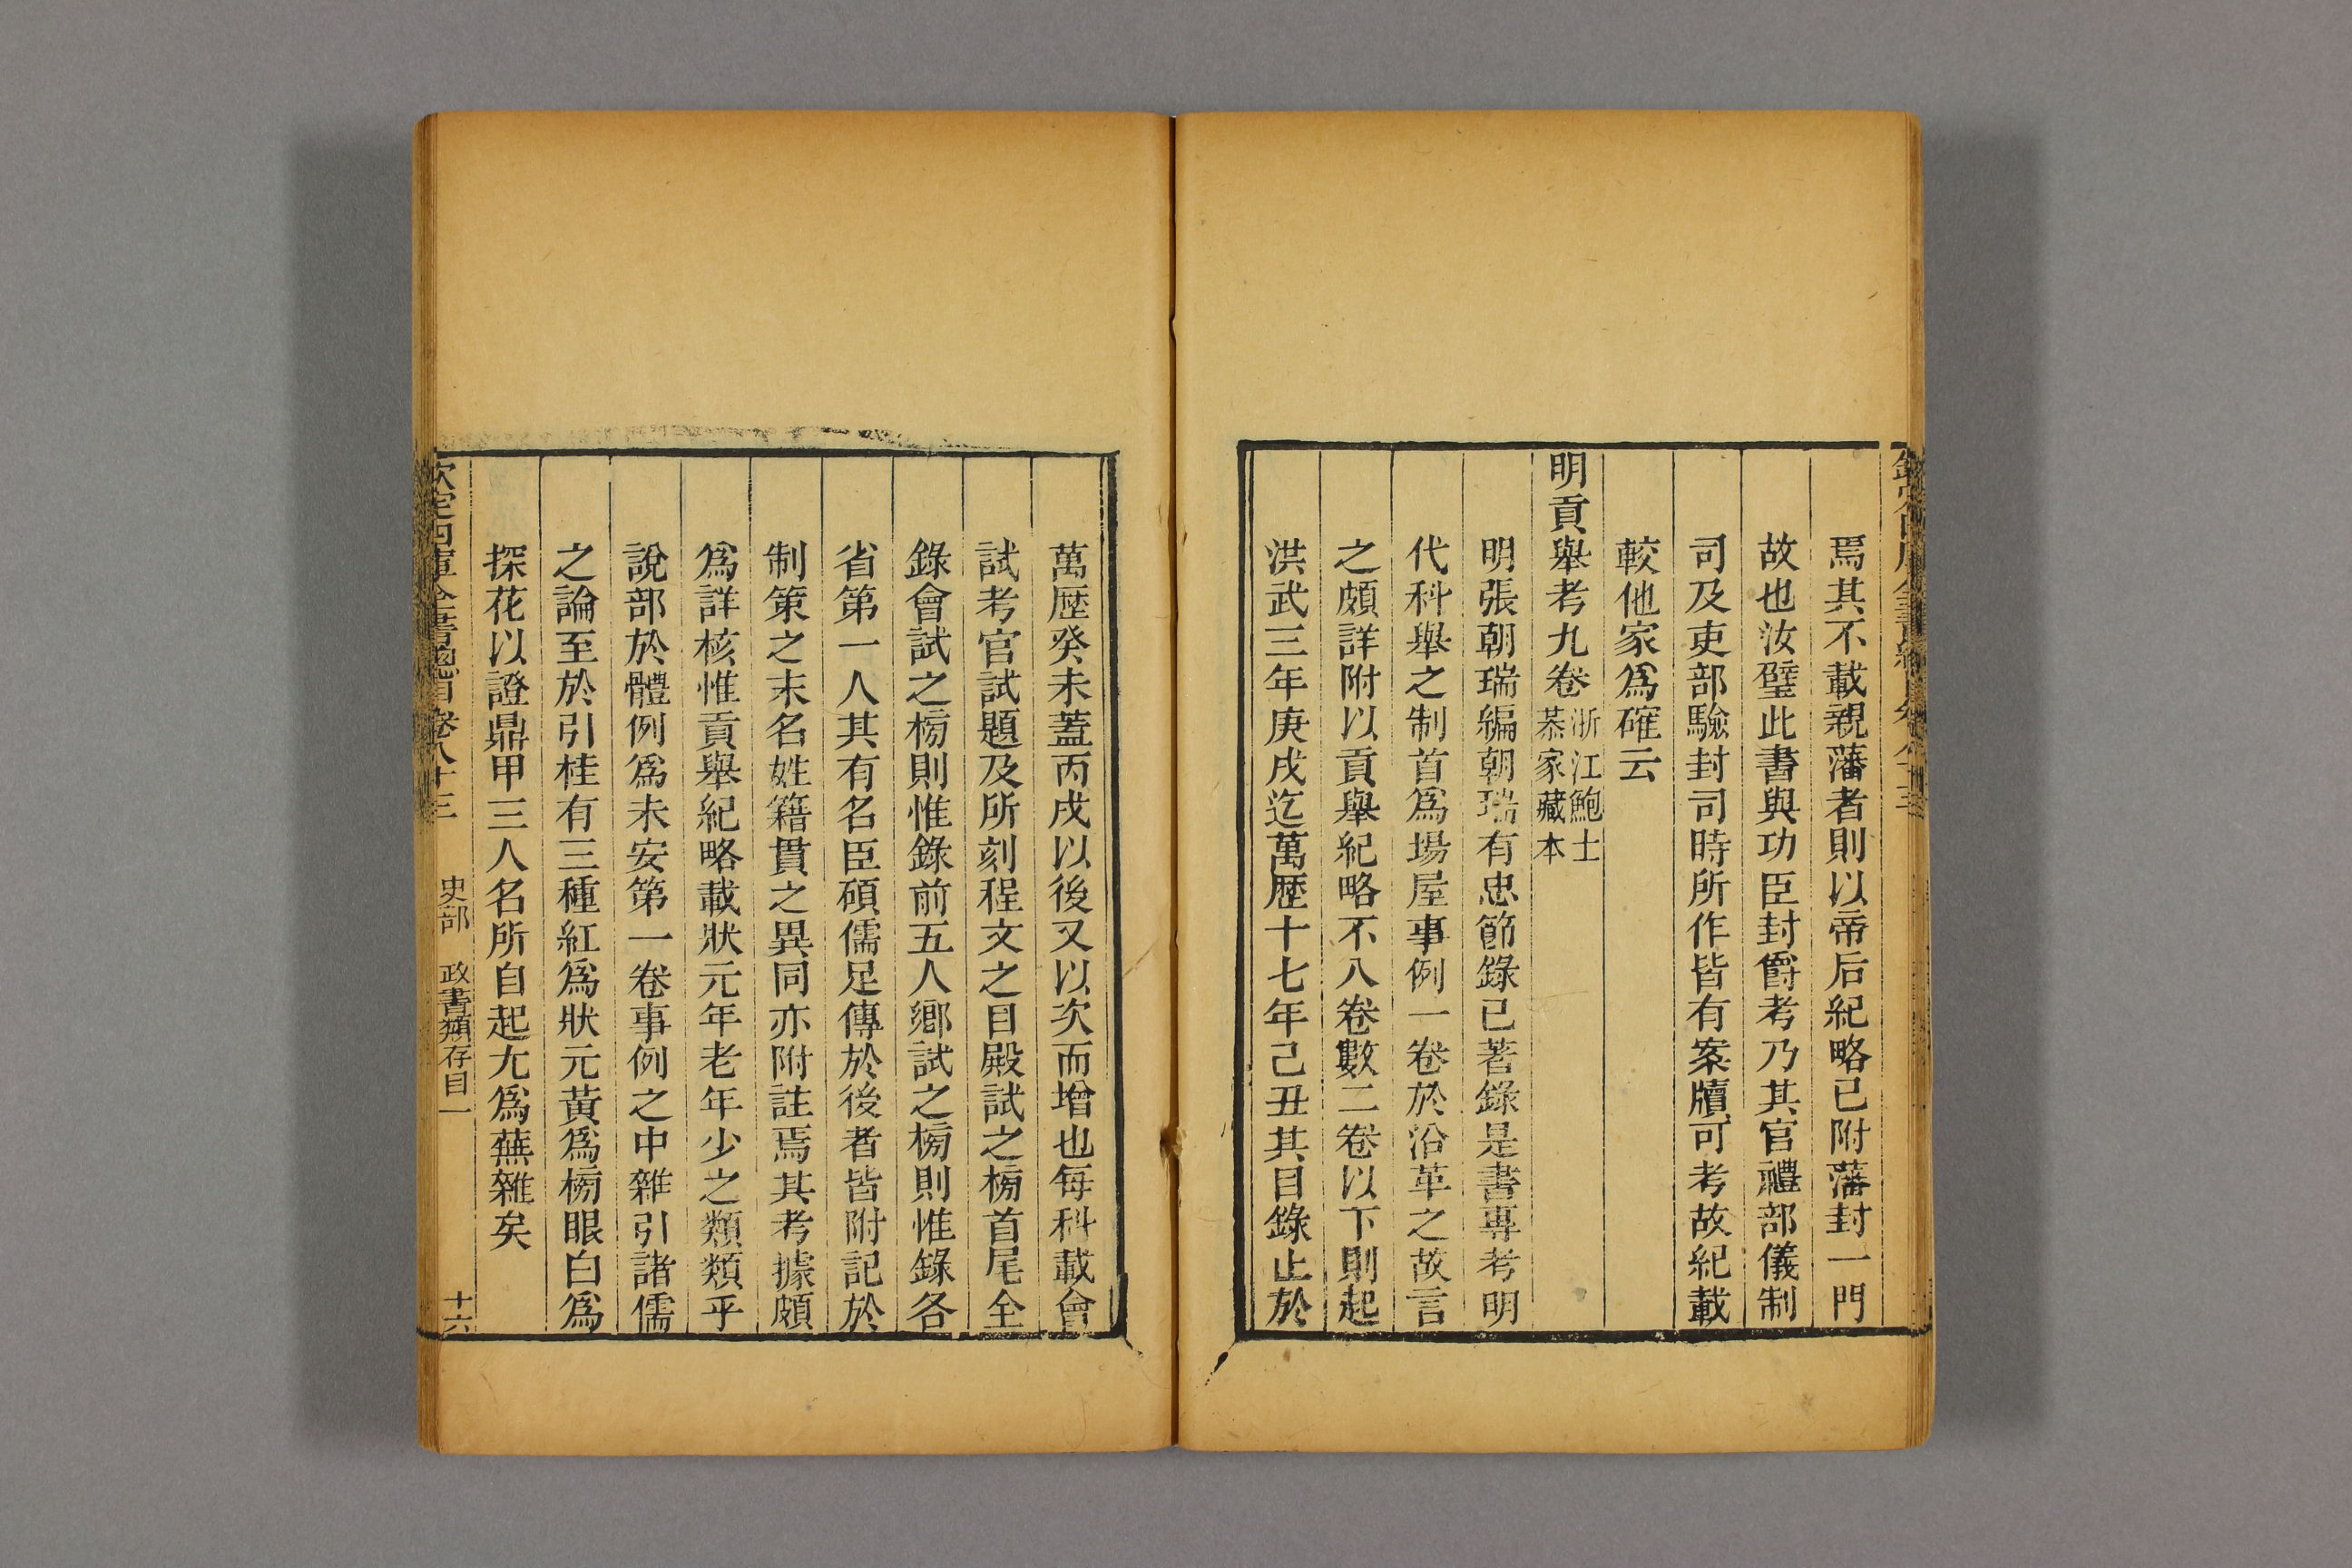 焉其不載親藩者則以帝后紀略已附藩封一門
故也汝璧此書與功臣封爵考乃其官禮部儀制
司及吏部驗封司時所作皆有案牘可考故紀載
較他家爲確云
明貢舉考九卷浙江鮑士恭家藏本
明張朝瑞編朝瑞有忠節錄已著錄是書專考明
代科舉之制首爲場屋事例一卷於沿革之故言
之頗詳附以貢舉紀略不入卷數二卷以下則起
洪武三年庚戌迄萬歷十七年己丑其目錄止於
萬歷癸未蓋丙戌以後又以次而增也每科載會
試考官試題及所刻程文之目殿試之榜首尾全
錄會試之榜則惟錄前五人鄉試之榜則惟錄各
省第一人其有名臣碩儒足傳於後者皆附記於
制策之末名姓籍貫之異同亦附註焉其考據頗
爲詳核惟貢舉紀略載狀元年老年少之類類乎
說部於體例爲未安第一卷事例之中雜引諸儒
之論至於引桂有三種紅爲狀元黃爲榜眼白爲
探花以證鼎甲三人名所自起尤爲蕪雜矣
欽定四庫全書總目卷八十三 史部 政書類存目一 十六